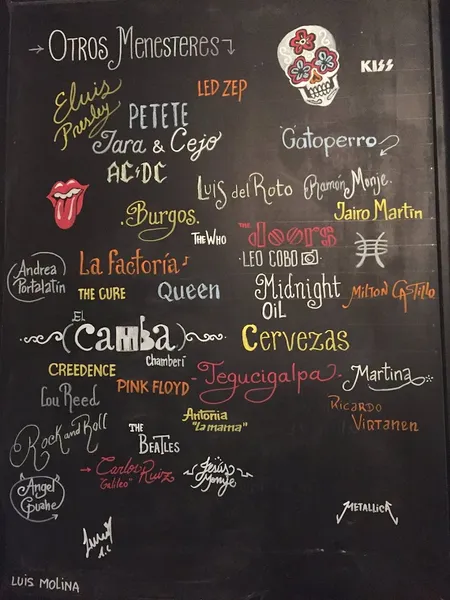 OTROS MENESTERES
KISS
LED ZEP
Elvis
Presley
PETETE
Jara & Cejo
Gatoperro
AC DC
Luis del Roto
Ramón Monje
Jairo Martín
Burgos
THE WHO
THE doors
LEO COBO
Andrea
Portalatín
La factoría
THE CURE
Queen
Midnight
OiL
MiLTON CASTillo
El
(CAMBA)
Chamberí
Cervezas
CREEDENCE
PINK FLOYD
Tegucigalpa
Martina
Lou Reed
Antonia
"La mama"
Ricardo
Virtanen
Rock and Roll
THE
BEATLES
Carlos Ruiz
"Galileo"
Jesús
Monje
Angel
METALLICA
LUIS MOLINA